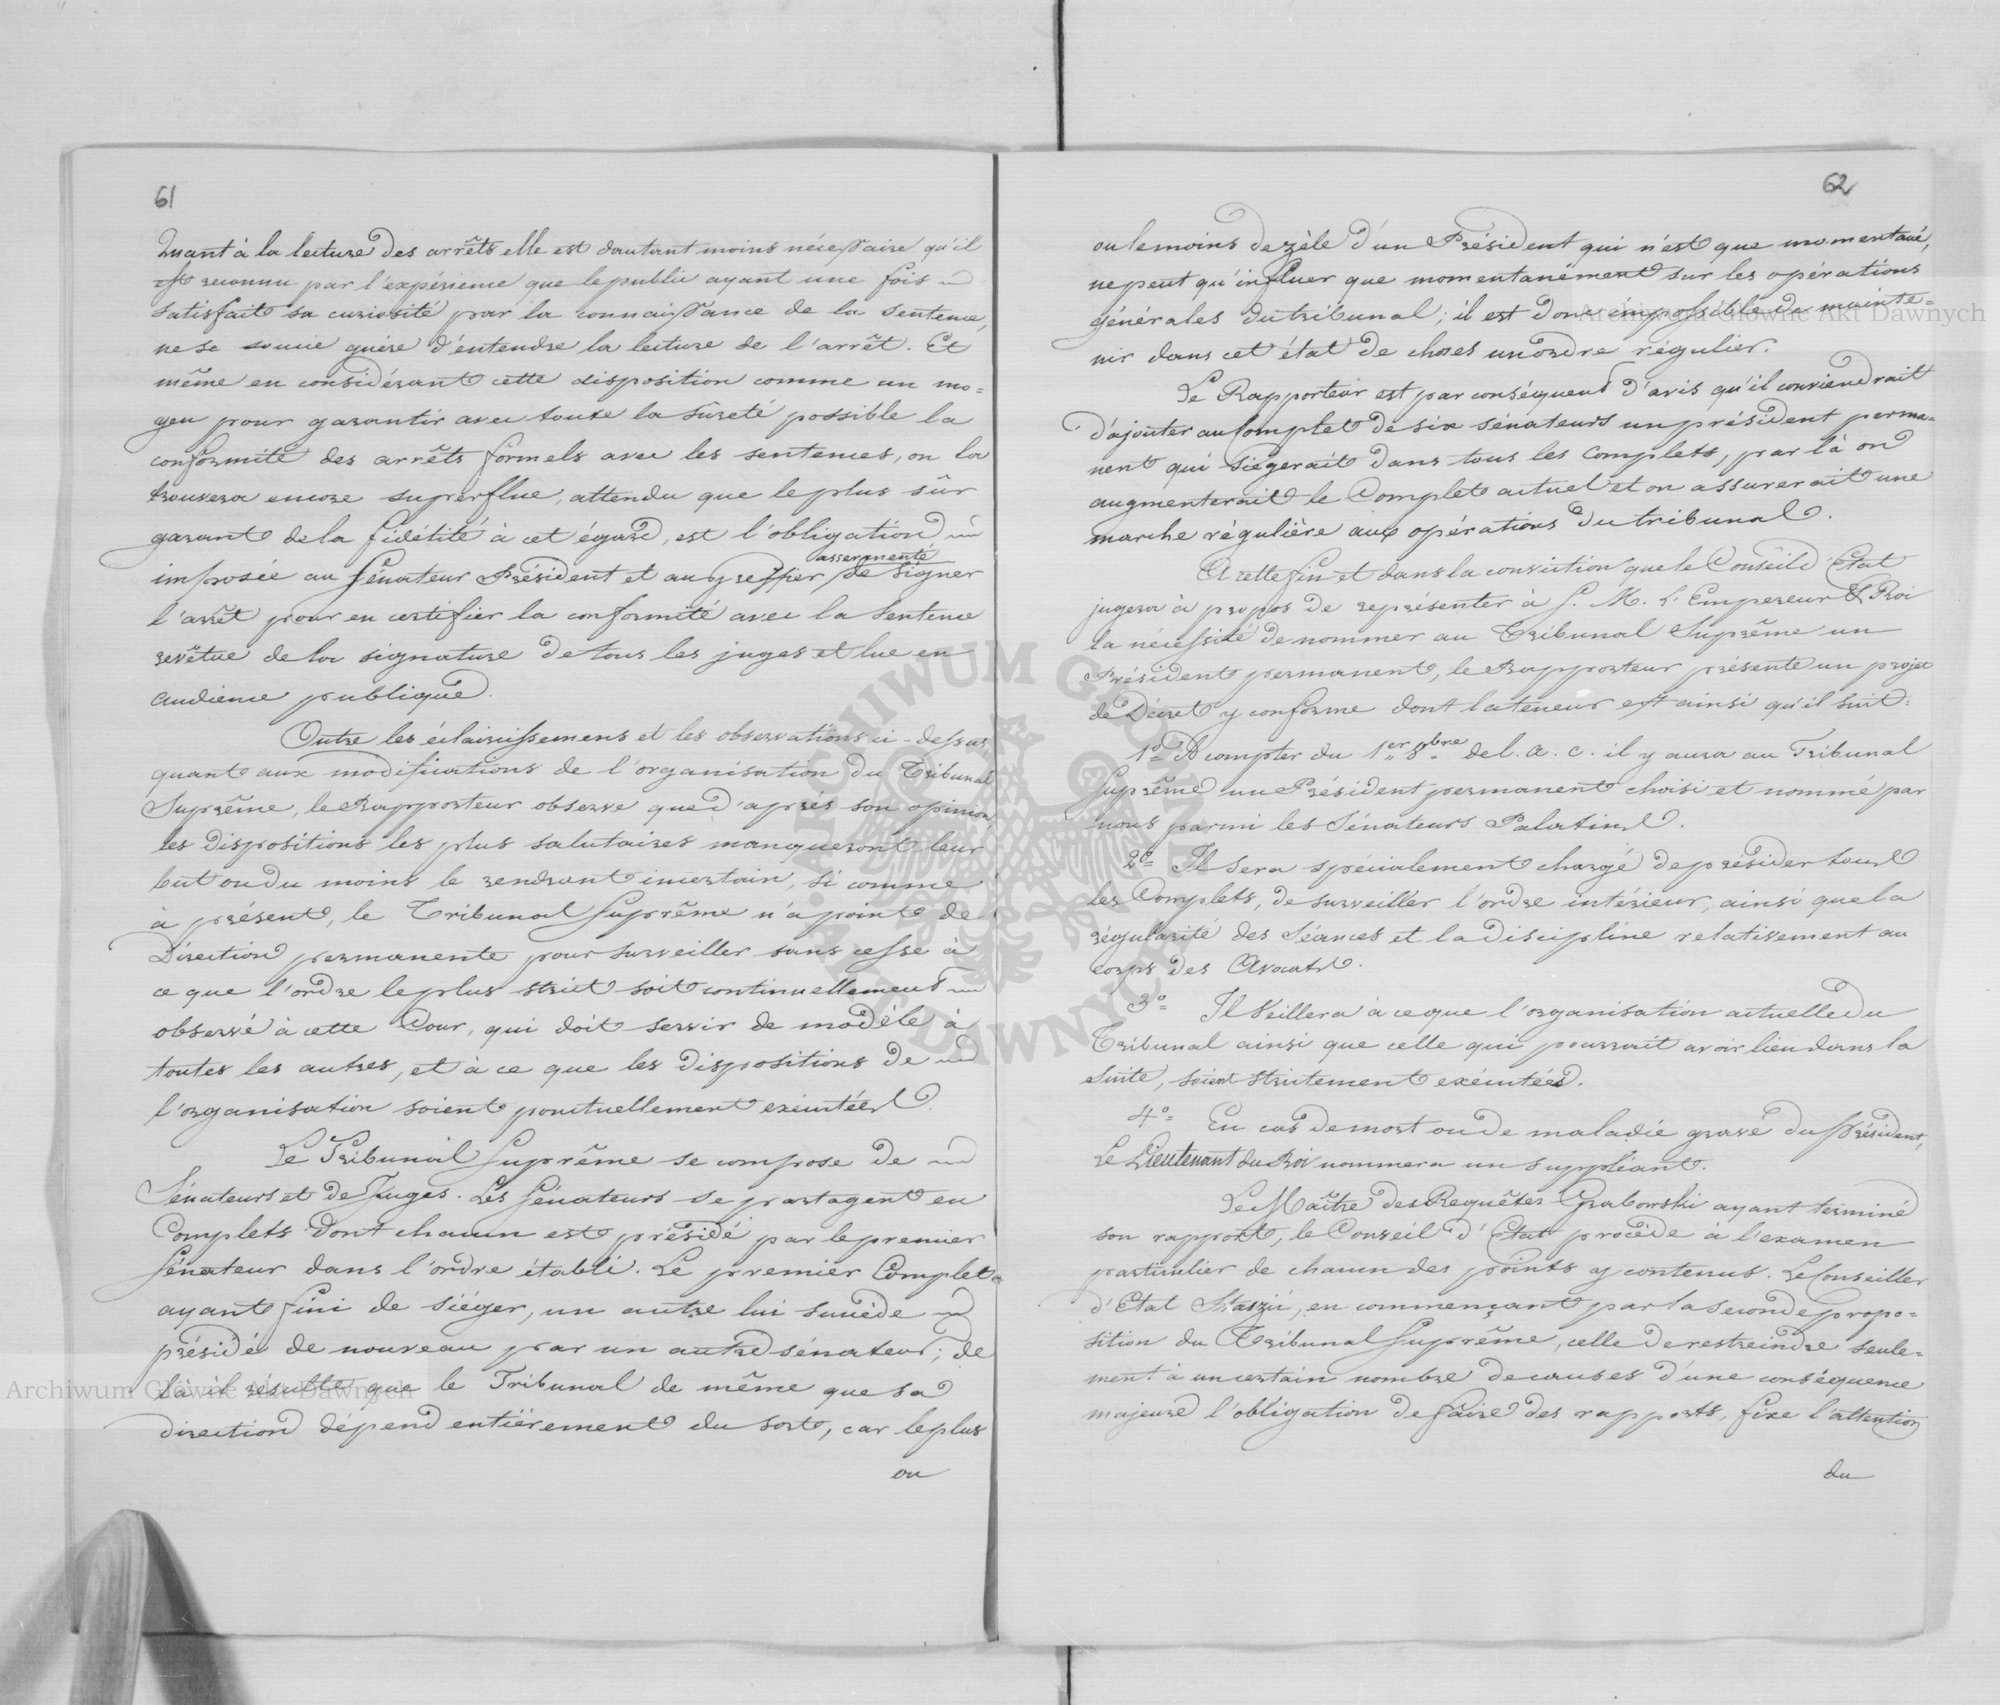 61
Quant à la lecture des arrêts elle est dautant moins nécessaire qu'il
est reconnu par l'expérience que le public ayant une fois
satisfait sa curiosité par la connaissance de la sentence,
ne se soucie guère d'entendre la lecture de l'arrêt. Et
même en considérant cette disposition comme un mo=
yen pour garantir avec toute la sûreté possible la
conformité des arrêts formels avec les sentences, on la
trouvera encore superflue, attendu que le plus sûr
garant de la fidélité à cet égard, est l'obligation
assermenté
imposée au Sénateur Président et au greffier, de signer
l'arrêt pour en certifier la conformité avec la sentence
revêtue de la signature de tous les juges et lue en
audience publique.
Outre les éclaircissemens et les observations ci-dessus
quant aux modifications de l'organisation du Tribunal
Suprême, le Rapporteur observe que d'après son opinion
les dispositions les plus salutaires manqueront leur
but ou du moins le rendront incertain, si comme
à présent, le Tribunal Suprême n'a point de
Direction permanente pour surveiller sans cesse à
ce que l'ordre le plus strict soit continuellement
observé à cette Cour, qui doit servir de modèle à
toutes les autres, et à ce que les dispositions de
l'organisation soient ponctuellement exécutées.
Le Tribunal Suprême se compose de
Sénateurs et de Juges. Les Sénateurs se partagent en
Complets dont chacun est présidé par le premier
Sénateur dans l'ordre établi. Le premier Complet
ayant fini de siéger, un autre lui succède
présidé de nouveau par un autre sénateur; de
là il résulte que le Tribunal de même que sa
direction dépend entièrement du sort, car le plus
ou
62
ou le moins de zèle d'un Président qui n'est que momentané,
ne peut qu'influer que momentanément sur les opérations
générales du tribunal; il est donc impossible de mainte=
nir dans cet état de choses un ordre régulier.
Le Rapporteur est par conséquent d'avis qu'il conviendrait
d'ajouter au Complet de six sénateurs un président perma=
nent qui siégerait dans tous les Complets, par là on
augmenterait le Complet actuel et on assurerait une
marche régulière aux opérations du tribunal.
A cette fin et dans la conviction que le Conseil d'Etat
jugera à propos de représenter à S. M. L'Empereur & Roi
la nécessité de nommer au Tribunal Suprême un
Président permanent, le Rapporteur présente un projet
de Décret y conforme dont la teneur est ainsi qu'il suit:
1º A compter du 1er 8bre de l. a. c. il y aura au Tribunal
Suprême un Président permanent choisi et nommé par
nous parmi les Sénateurs Palatins.
2º Il sera spécialement chargé de présider tous
les Complets, de surveiller l'ordre intérieur, ainsi que la
régularité des Séances et la discipline relativement au
corps des Avocats.
3º Il veillera à ce que l'organisation actuelle du
Tribunal ainsi que celle qui pourrait avoir lieu dans la
suite, soient strictement exécutées.
4º En cas de mort ou de maladie grave du Président,
Le Lieutenant du Roi nommera un suppléant.
Le Maître des Requêtes Grabowski ayant terminé
son rapport, le Conseil d'Etat procède à l'examen
particulier de chacun des points y contenus. Le Conseiller
d'Etat Staszic, en commençant par la seconde propo=
sition du Tribunal Suprême, celle de restreindre seule=
ment à un certain nombre de causes d'une conséquence
majeure l'obligation de faire des rapports, fixe l'attention
du
Archiwum Główne Akt Dawnych
Archiwum Główne Akt Dawnych
ARCHIWUM GŁÓWNE AKT DAWNYCH